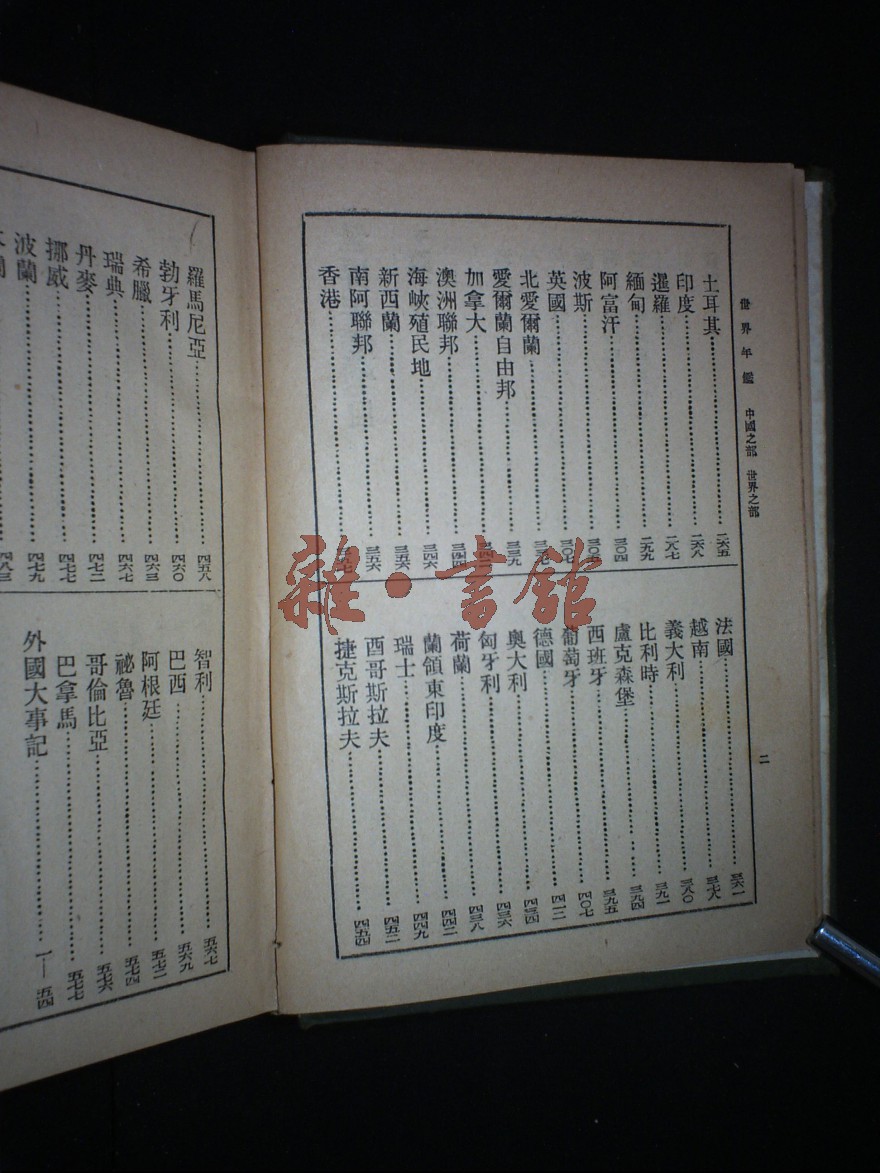 世界年鑑 中國之部 世界之部
二
土耳其 二六五
印度 二六八
暹羅 二八七
緬甸 二九九
阿富汗 三〇四
波斯
英國 三〇七
北愛爾蘭
愛爾蘭自由邦 三三九
加拿大
澳洲聯邦
海峽殖民地 三四六
新西蘭 三五六
南阿聯邦 三五六
香港
法國 三六一
越南 三七八
義大利 三八〇
比利時 三九一
盧克森堡 三九四
西班牙 三九五
葡萄牙 四〇七
德國 四一二
奧大利 四三四
匈牙利 四三六
荷蘭 四三八
蘭領東印度 四四二
瑞士 四四九
酉哥斯拉夫 四五二
捷克斯拉夫 四五四
羅馬尼亞 四五八
勃牙利 四六〇
希臘 四六三
瑞典 四六七
丹麥 四七二
挪威 四七七
波蘭 四七九
四八三
智利 五六七
巴西 五六九
阿根廷 五七二
祕魯 五七四
哥倫比亞 五七六
巴拿馬 五七七
外國大事記 一—五四
雜·書館